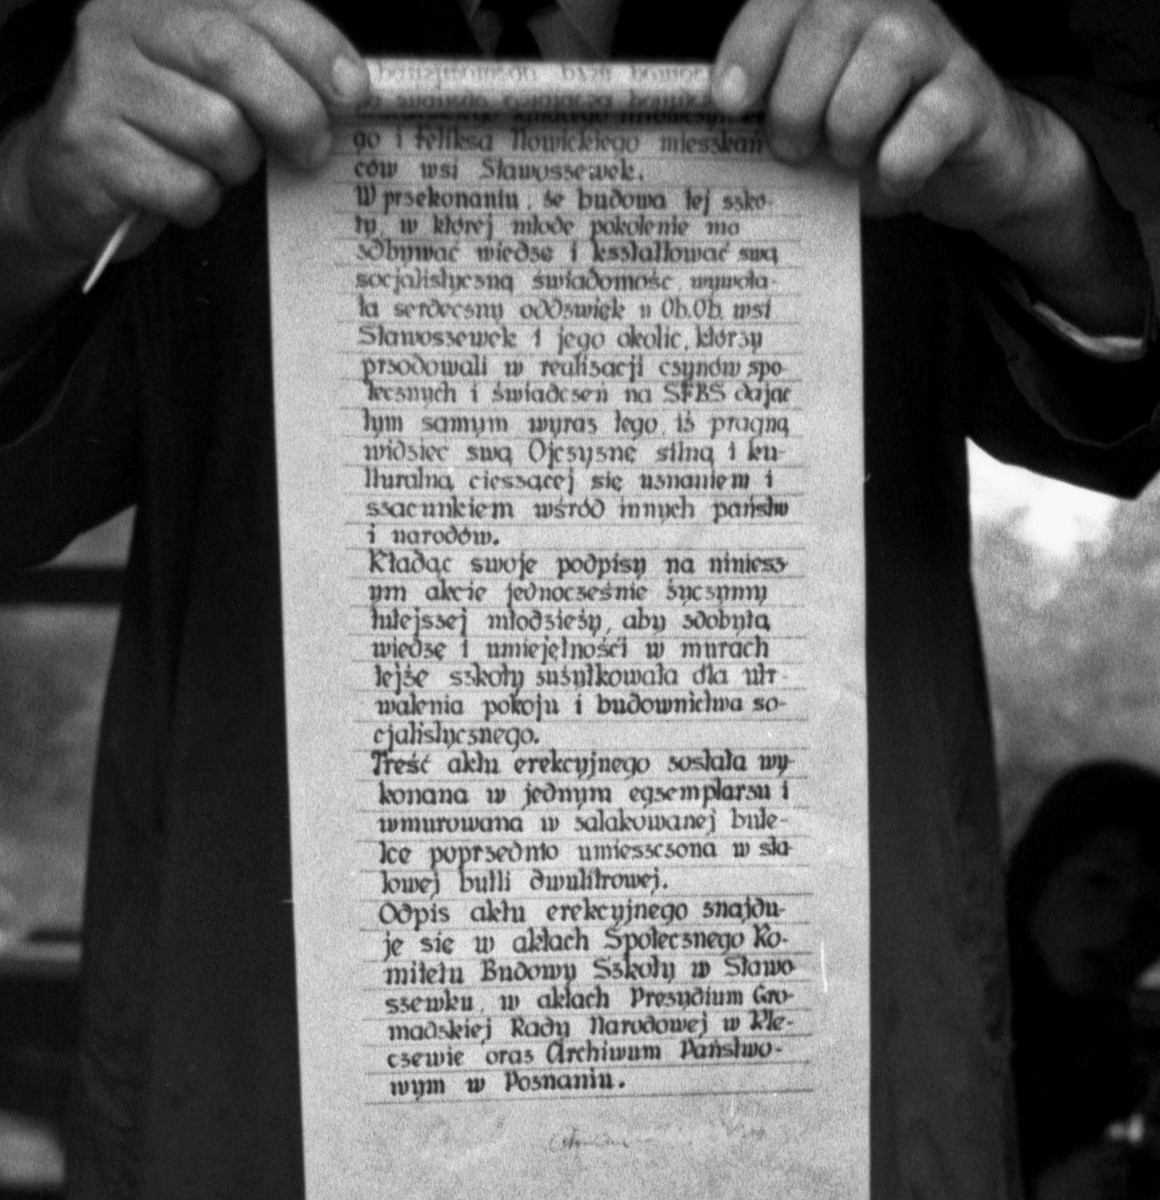 go i Feliksa Nowickiego mieszkań
ców wsi Sławoszewek.
W przekonaniu, że budowa tej szko-
ły, w której młode pokolenie ma
zdbywać wiedzę i kształtować swą
socjalistyczną świadomość wywoła-
ła serdeczny oddźwięk u Ob.Ob. wsi
Sławoszewek i jego okolic, którzy
przodowali w realizacji czynów spo-
łecznych i świadczeń na SFBS dając
tym samym wyraz tego, iż pragną
widzieć swą Ojczyznę silną i ku-
lturalną cieszącej się uznaniem i
szacunkiem wśród innych państw
i narodów.
Kładąc swoje podpisy na niniejsz
ym akcie jednocześnie życzymy
tutejszej młodzieży, aby zdobytą
wiedzę i umiejętności w murach
tejże szkoły zużytkowała dla utr-
walenia pokoju i budownictwa so-
cjalistycznego.
Treść aktu erekcyjnego została wy-
konana w jednym egzemplarzu i
wmurowana w zalakowanej bute-
lce poprzednio umieszczona w sta-
lowej butli dwulitrowej.
Odpis aktu erekcyjnego znajdu-
je się w aktach Społecznego Ko-
mitetu Budowy Szkoły w Sławo
szewku, w aktach Prezydium Gro-
madzkiej Rady Narodowej w Kle-
czewie oraz Archiwum Państwo-
wym w Poznaniu.